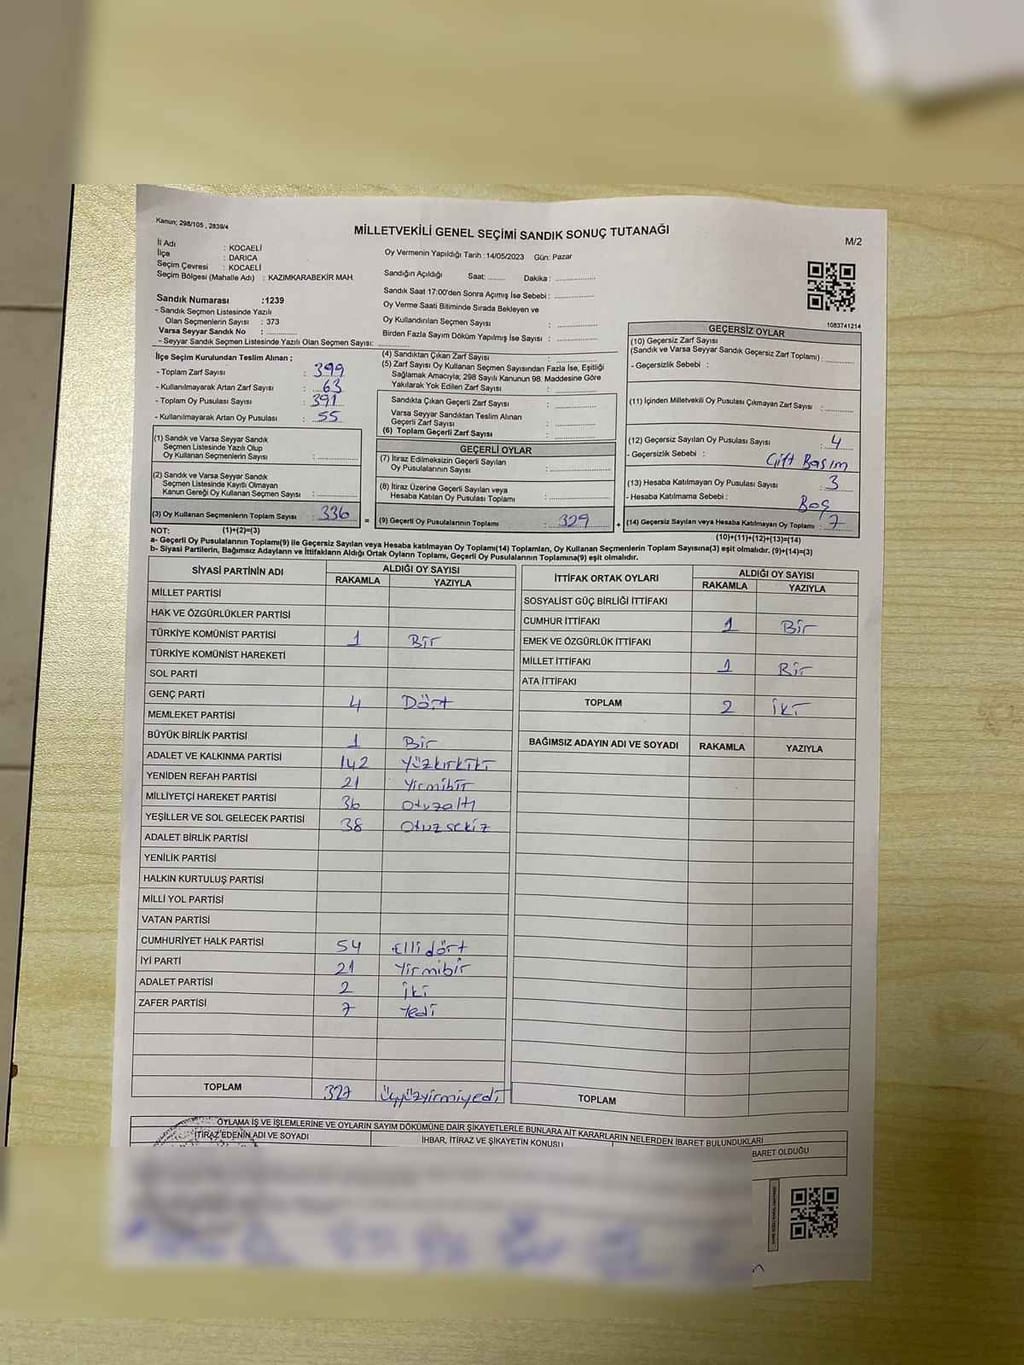 Kanun; 298/105 , 2839/4
MİLLETVEKİLİ GENEL SEÇİMİ SANDIK SONUÇ TUTANAĞI
M/2
İl Adı : KOCAELİ
İlçe : DARICA
Seçim Çevresi : KOCAELİ
Seçim Bölgesi (Mahalle Adı) : KAZIMKARABEKİR MAH.
Oy Vermenin Yapıldığı Tarih :14/05/2023 Gün: Pazar
Sandığın Açıldığı Saat: ........ Dakika : ..............
Sandık Saat 17:00'den Sonra Açımış İse Sebebi : ..............
Oy Verme Saati Bitiminde Sırada Bekleyen ve
Oy Kullandırılan Seçmen Sayısı : ..............
Birden Fazla Sayım Döküm Yapılmış İse Sayısı : ..............
Sandık Numarası :1239
- Sandık Seçmen Listesinde Yazılı
Olan Seçmenlerin Sayısı : 373
Varsa Seyyar Sandık No : ..............
- Seyyar Sandık Seçmen Listesinde Yazılı Olan Seçmen Sayısı: ..............
1083741214
İlçe Seçim Kurulundan Teslim Alınan ;
- Toplam Zarf Sayısı : 399
- Kullanılmayarak Artan Zarf Sayısı : 63
- Toplam Oy Pusulası Sayısı : 391
- Kullanılmayarak Artan Oy Pusulası : 55
(1) Sandık ve Varsa Seyyar Sandık
Seçmen Listesinde Yazılı Olup
Oy Kullanan Seçmenlerin Sayısı : ..............
(2) Sandık ve Varsa Seyyar Sandık
Seçmen Listesinde Kayıtlı Olmayan
Kanun Gereği Oy Kullanan Seçmen Sayısı : ..............
(3) Oy Kullanan Seçmenlerin Toplam Sayısı : 336 =
(4) Sandıktan Çıkan Zarf Sayısı : ..............
(5) Zarf Sayısı Oy Kullanan Seçmen Sayısından Fazla İse, Eşitliği
Sağlamak Amacıyla; 298 Sayılı Kanunun 98. Maddesine Göre
Yakılarak Yok Edilen Zarf Sayısı : ..............
Sandıkta Çıkan Geçerli Zarf Sayısı : ..............
Varsa Seyyar Sandıktan Teslim Alınan
Geçerli Zarf Sayısı : ..............
(6) Toplam Geçerli Zarf Sayısı : ..............
GEÇERLİ OYLAR
(7) İtiraz Edilmeksizin Geçerli Sayılan
Oy Pusulalarının Sayısı : ..............
(8) İtiraz Üzerine Geçerli Sayılan veya
Hesaba Katılan Oy Pusulası Toplamı : ..............
(9) Geçerli Oy Pusulalarının Toplamı : 329 +
GEÇERSİZ OYLAR
(10) Geçersiz Zarf Sayısı
(Sandık ve Varsa Seyyar Sandık Geçersiz Zarf Toplamı) : ..............
- Geçersizlik Sebebi :
(11) İçinden Milletvekili Oy Pusulası Çıkmayan Zarf Sayısı : ..............
(12) Geçersiz Sayılan Oy Pusulası Sayısı : 4
- Geçersizlik Sebebi : Çift Basım
(13) Hesaba Katılmayan Oy Pusulası Sayısı : 3
- Hesaba Katılmama Sebebi : Boş
(14) Geçersiz Sayılan veya Hesaba Katılmayan Oy Toplamı : 7
NOT: (1)+(2)=(3)
(10)+(11)+(12)+(13)=(14)
a- Geçerli Oy Pusulaları Toplamı(9) ile Geçersiz Sayılan veya Hesaba katılmayan Oy Toplamı(14) Toplamları, Oy Kullanan Seçmenlerin Toplam Sayısına(3) eşit olmalıdır. (9)+(14)=(3)
b- Siyasi Partilerin, Bağımsız Adayların ve İttifakların Aldığı Ortak Oyların Toplamı, Geçerli Oy Pusulalarının Toplamına(9) eşit olmalıdır.
SİYASİ PARTİNİN ADI ALDIĞI OY SAYISI
RAKAMLA YAZIYLA
MİLLET PARTİSİ
HAK VE ÖZGÜRLÜKLER PARTİSİ
TÜRKİYE KOMÜNİST PARTİSİ 1 Bir
TÜRKİYE KOMÜNİST HAREKETİ
SOL PARTİ
GENÇ PARTİ 4 Dört
MEMLEKET PARTİSİ
BÜYÜK BİRLİK PARTİSİ 1 Bir
ADALET VE KALKINMA PARTİSİ 142 Yüzkırkiki
YENİDEN REFAH PARTİSİ 21 Yirmibir
MİLLİYETÇİ HAREKET PARTİSİ 36 Otuzaltı
YEŞİLLER VE SOL GELECEK PARTİSİ 38 Otuzsekiz
ADALET BİRLİK PARTİSİ
YENİLİK PARTİSİ
HALKIN KURTULUŞ PARTİSİ
MİLLİ YOL PARTİSİ
VATAN PARTİSİ
CUMHURİYET HALK PARTİSİ 54 Ellidört
İYİ PARTİ 21 Yirmibir
ADALET PARTİSİ 2 İki
ZAFER PARTİSİ 7 Yedi
TOPLAM 327 Üçyüzyirmiyedi
İTTİFAK ORTAK OYLARI ALDIĞI OY SAYISI
RAKAMLA YAZIYLA
SOSYALİST GÜÇ BİRLİĞİ İTTİFAKI
CUMHUR İTTİFAKI 1 Bir
EMEK VE ÖZGÜRLÜK İTTİFAKI
MİLLET İTTİFAKI 1 Bir
ATA İTTİFAKI
TOPLAM 2 İki
BAĞIMSIZ ADAYIN ADI VE SOYADI RAKAMLA YAZIYLA
TOPLAM
OYLAMA İŞ VE İŞLEMLERİNE VE OYLARIN SAYIM DÖKÜMÜNE DAİR ŞİKAYETLERLE BUNLARA AİT KARARLARIN NELERDEN İBARET BULUNDUKLARI
İTİRAZ EDENİN ADI VE SOYADI İHBAR, İTİRAZ VE ŞİKAYETİN KONUSU BARET OLDUĞU